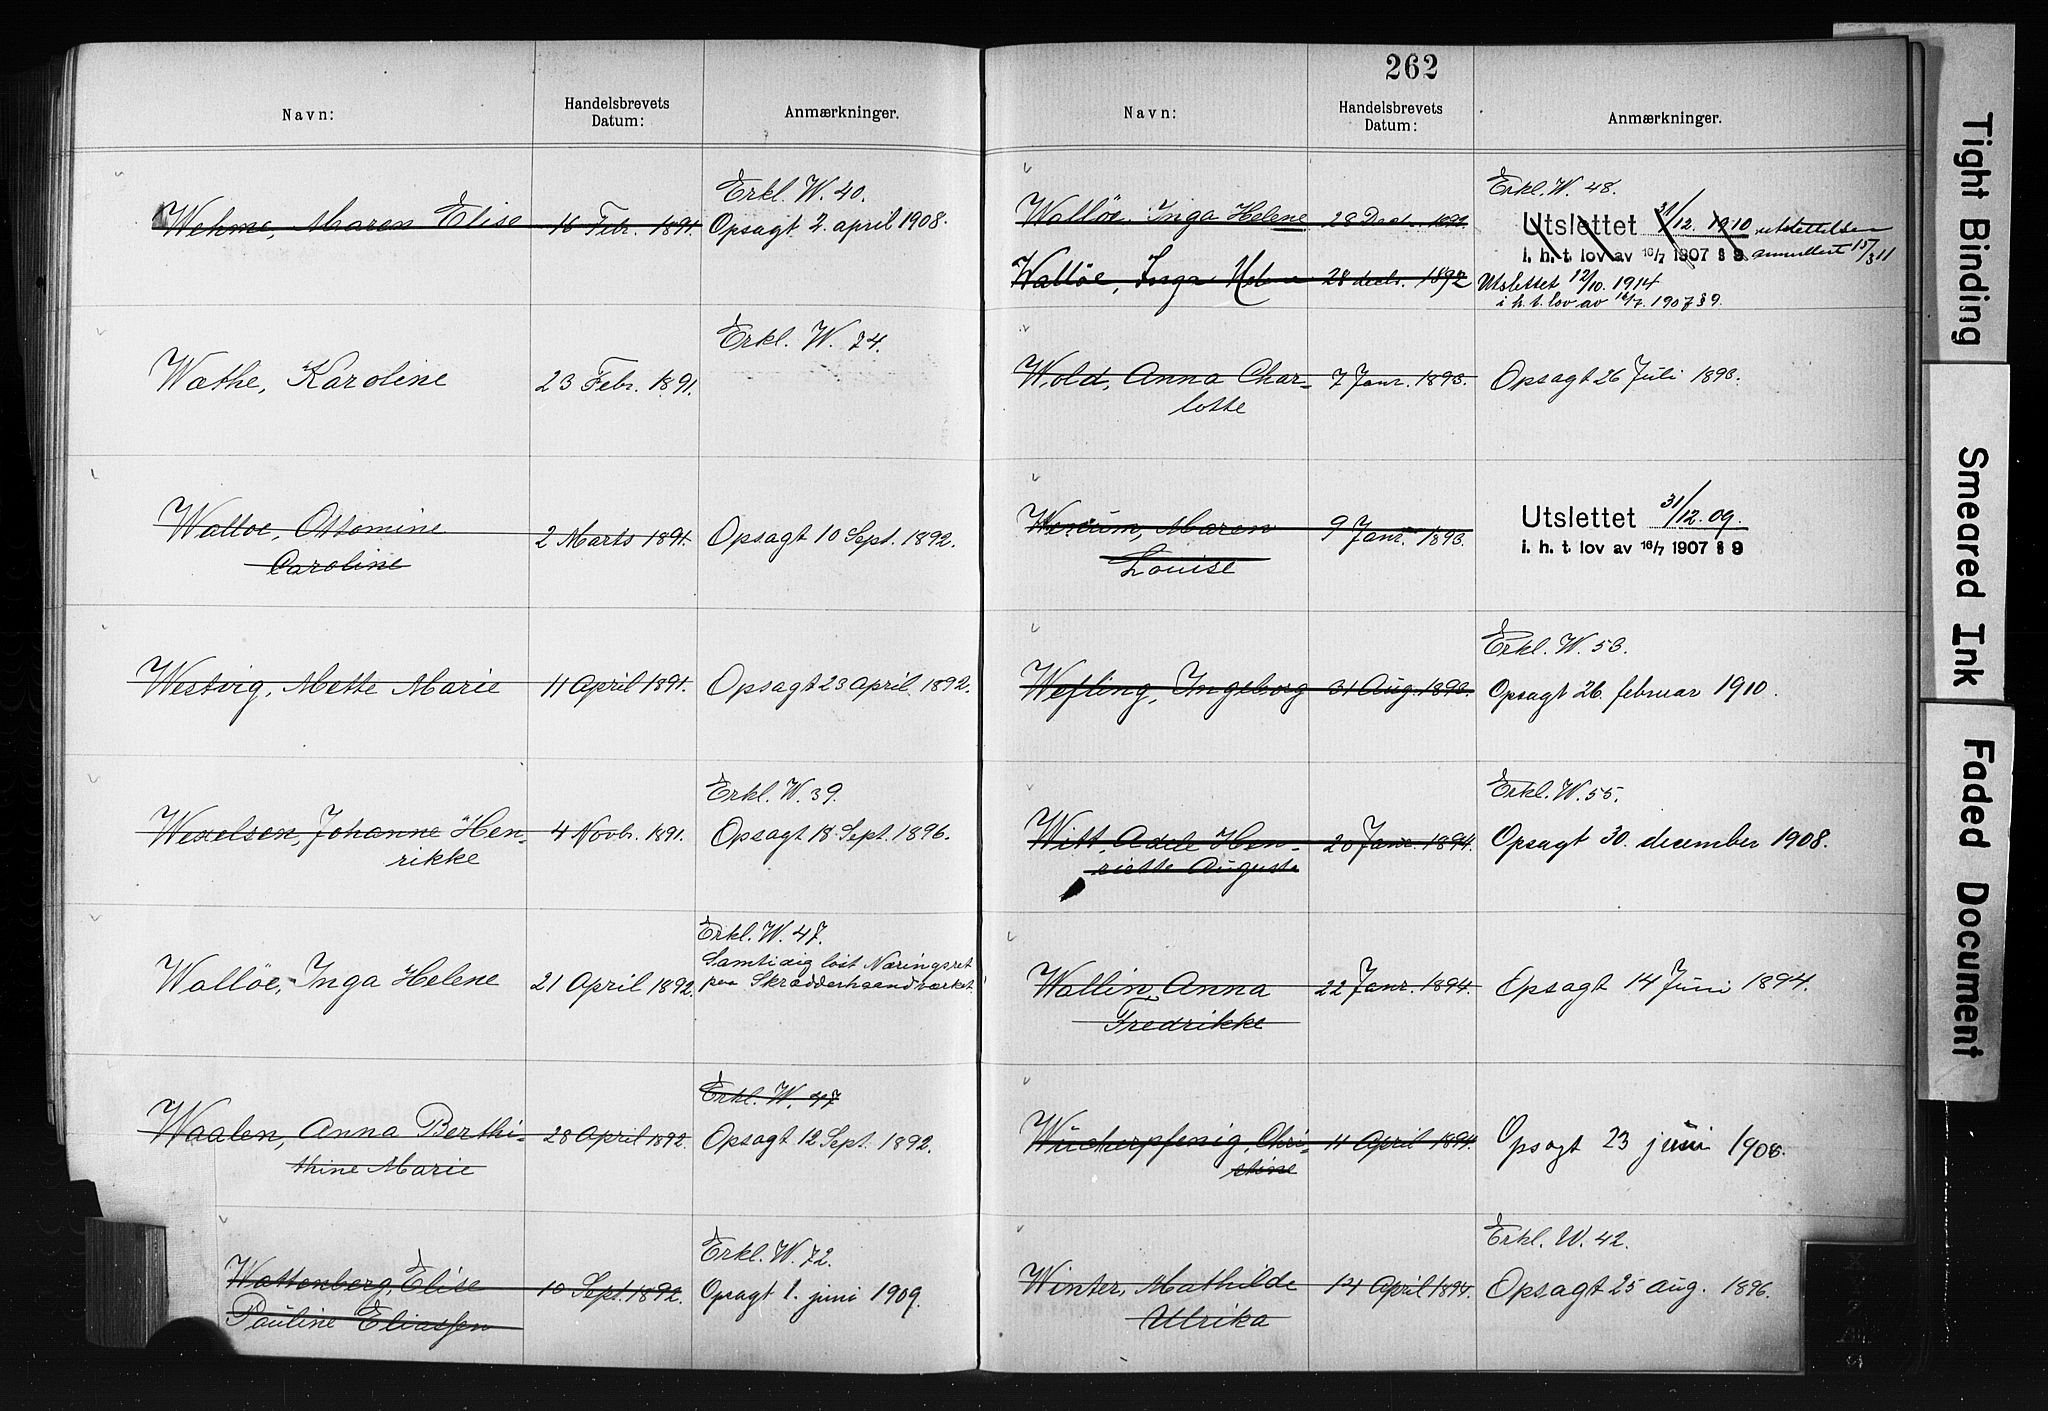 Navn:
Handelsbrevets
Datum:
Anmærkninger.
Erkl. W. 40.
Wehme, Maren Elise 16 Febr. 1891. Opsagt 2. april 1908.
Erkl. W. 24.
Wæthe, Karoline 23 Febr. 1891.
Walloe, Ottomine 2 Marts 1891. Opsagt 10 Sept. 1892.
Caroline
Westvig, Mette Marie 11 April 1891. Opsagt 23 April 1892.
Erkl. W. 39.
Wexelsen, Johanne Hen- 4 Novb. 1891. Opsagt 18 Sept. 1896.
rikke
Erkl. W. 47.
Samtidig löst Næringsret
Walløe, Inga Helene 21 April 1892. paa Skrædderhaandværket.
Erkl. W. 47
Waalen, Anna Berthi- 28 April 1892. Opsagt 12 Sept. 1892.
thine Marie
Erkl. W. 72.
Wattenberg, Elise 10 Sept. 1892. Opsagt 1. juni 1909.
Pauline Eliassen
262
Navn:
Handelsbrevets
Datum:
Anmærkninger.
Erkl. W. 48.
Walløe, Inga Helene 28 Decb. 1892. Utslettet 31/12. 1910 utslettelsen
i. h. t. lov av 16/7 1907 § 9 annullert 15/3 11
Walløe, Inga Helene 28 decbr. 1892 Utslettet 12/10. 1914
i h. t. lov av 16/7. 1907 § 9.
Wold, Anna Char- 7 Janr. 1893. Opsagt 26 Juli 1893.
lotte
Maren 9 Janr. 1893. Utslettet 31/12. 09.
Louise i. h. t. lov av 16/7 1907 § 9
Erkl. W. 53.
Wefling, Ingeborg 31 Aug. 1893. Opsagt 26. februar 1910.
Erkl. W. 55.
Witt Adele Hen- 20 Janr. 1894. Opsagt 30. december 1908.
riette Augusta
Wallin, Anna 22 Janr. 1894. Opsagt 14 Juni 1894.
Fredrikke
Wückerpfenig, Chri- 11 April 1894. Opsagt 23 juni 1908.
stine
Erkl. W. 42.
Winter, Mathilde 14 April 1894. Opsagt 25 aug. 1896.
Ulrika
Tight Binding
Smeared Ink
Faded Document